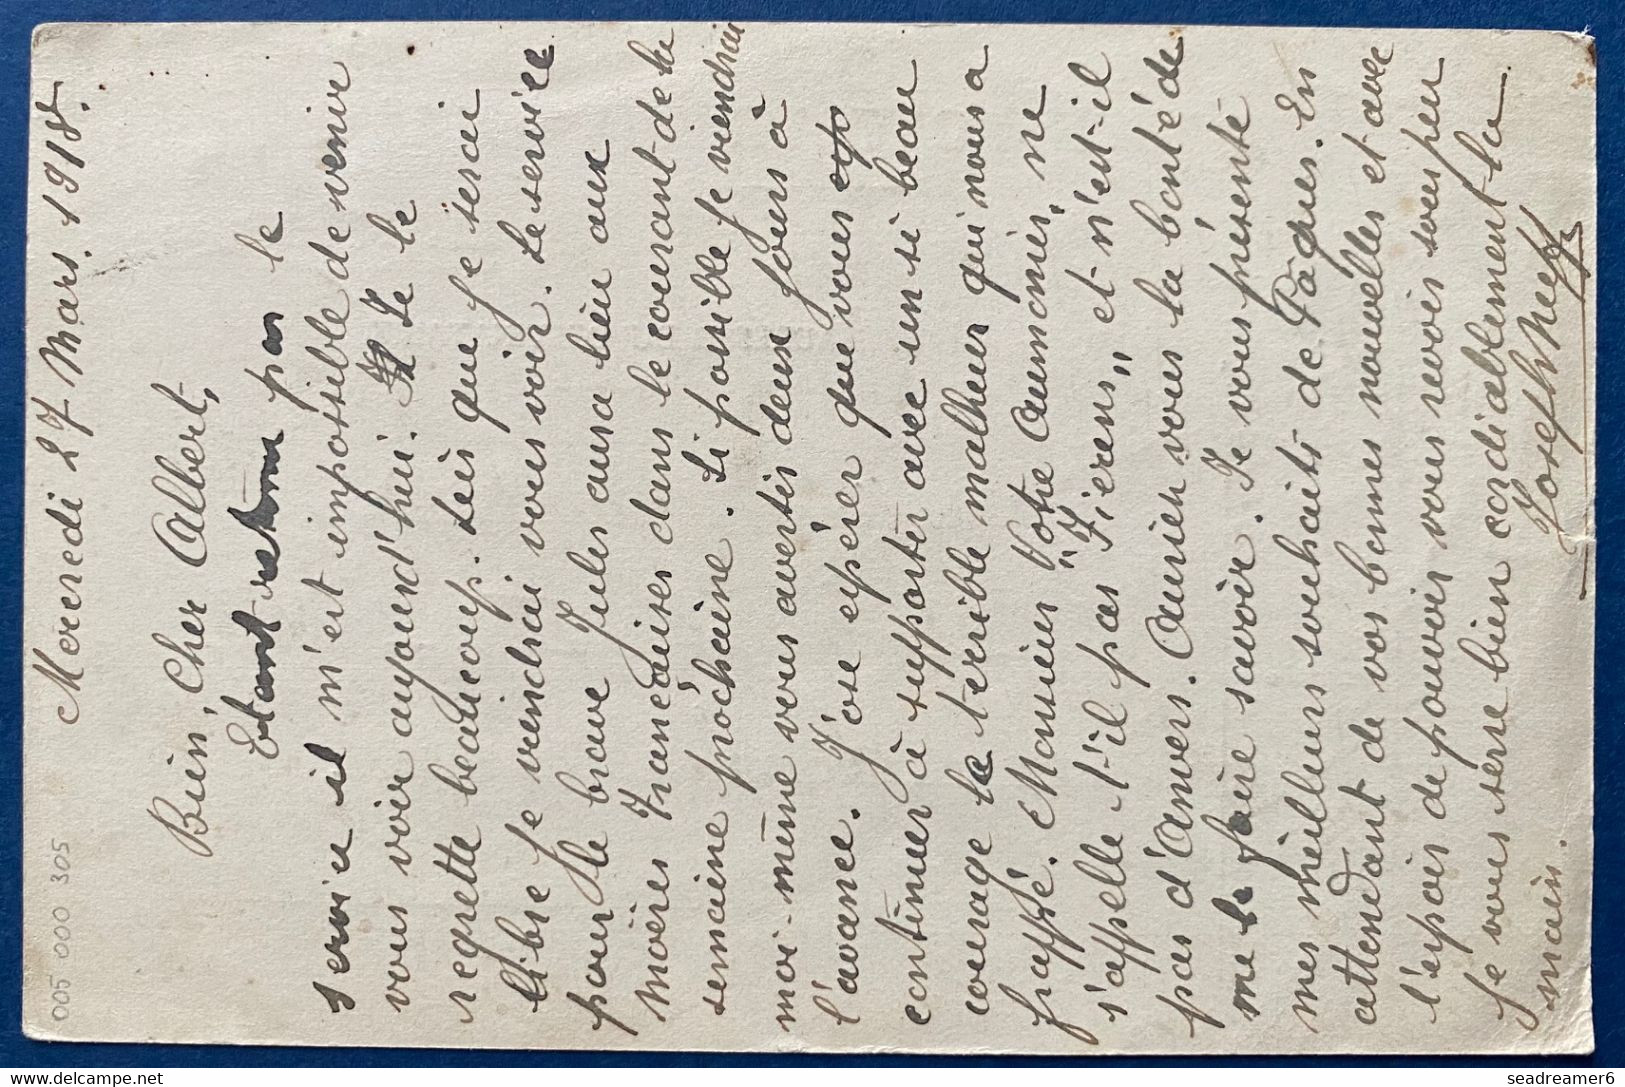 Mercredi 27 Mars. 1918.
Bien, Cher Albert,
Etant retenu par le
service il m'est impossible de venir
vous voir aujourd'hui. Je le
regrette beaucoup. Dès que je serai
libre je viendrai vous voir. Le service
pour le brave Jules aura lieu aux
Moëres Françaises dans le courant de la
semaine prochaine. Si possible je viendrai
moi-même vous avertir deux jours à
l'avance. J'ose espérer que vous
continuer à supporter avec un si beau
courage le terrible malheur qui nous a
frappé. Monsieur Votre Aumônier, ne
s'appelle t'il pas "Fierens" et n'est-il
pas d'Anvers. Auriez vous la bonté de
me le faire savoir. Je vous présente
mes meilleurs souhaits de Pâques. En
attendant de vos bonnes nouvelles et avec
l'espoir de pouvoir vous revoir sous peu
je vous serre bien cordialement la
main.
Joseph
005 000 305
delcampe.net
seadreamer6